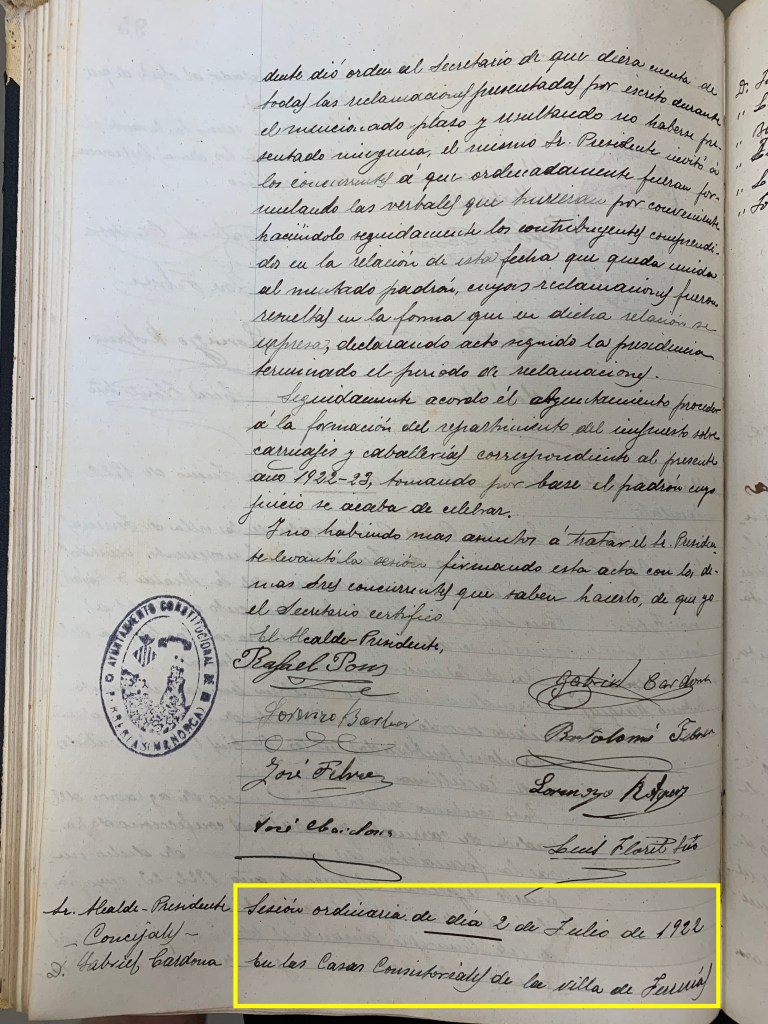 dente dió orden al Secretario de que diera cuenta de
todas las reclamaciones presentadas por escrito durante
el mencionado plazo y resultando no haberse pre-
sentado ninguna, el mismo Sr. Presidente invitó á
los concurrentes á que ordenadamente fueran for-
mulando las verbales que tuvieran por conveniente
haciéndolo seguidamente los contribuyentes comprendi-
dos en la relación de esta fecha que queda unida
al mentado padrón, cuyas reclamaciones fueron
resueltas en la forma que en dicha relación se
expresa, declarando acto seguido la presidencia
terminado el periodo de reclamaciones.
Seguidamente acordo él ayuntamiento proceder
á la formación del repartimiento del impuesto sobre
carruajes y caballerías correspondiente al presente
año 1922-23, tomando por base el padrón cuyo
juicio se acaba de celebrar.
Y no habiendo mas asuntos á tratar el Sr. Preside
te levantó la sesión firmando esta acta con los de-
mas Sres concurrentes que saben hacerlo, de que yo
el Secretario certifico
El Alcalde-Presidente,
Rafael Pons
Gabriel Cardona
Lorenzo Barber
Bartolomé Febrer
José Febrer
Lorenzo
José Cardona
Luis Florit
AYUNTAMIENTO CONSTITUCIONAL DE
FERRERIAS (MENORCA)
Sr. Alcalde-Presidente
Sesión ordinaria de día 2 de Julio de 1922
-Concejales-
D. Gabriel Cardona
En las Casas Consistoriales de la villa de Ferrerías
D.